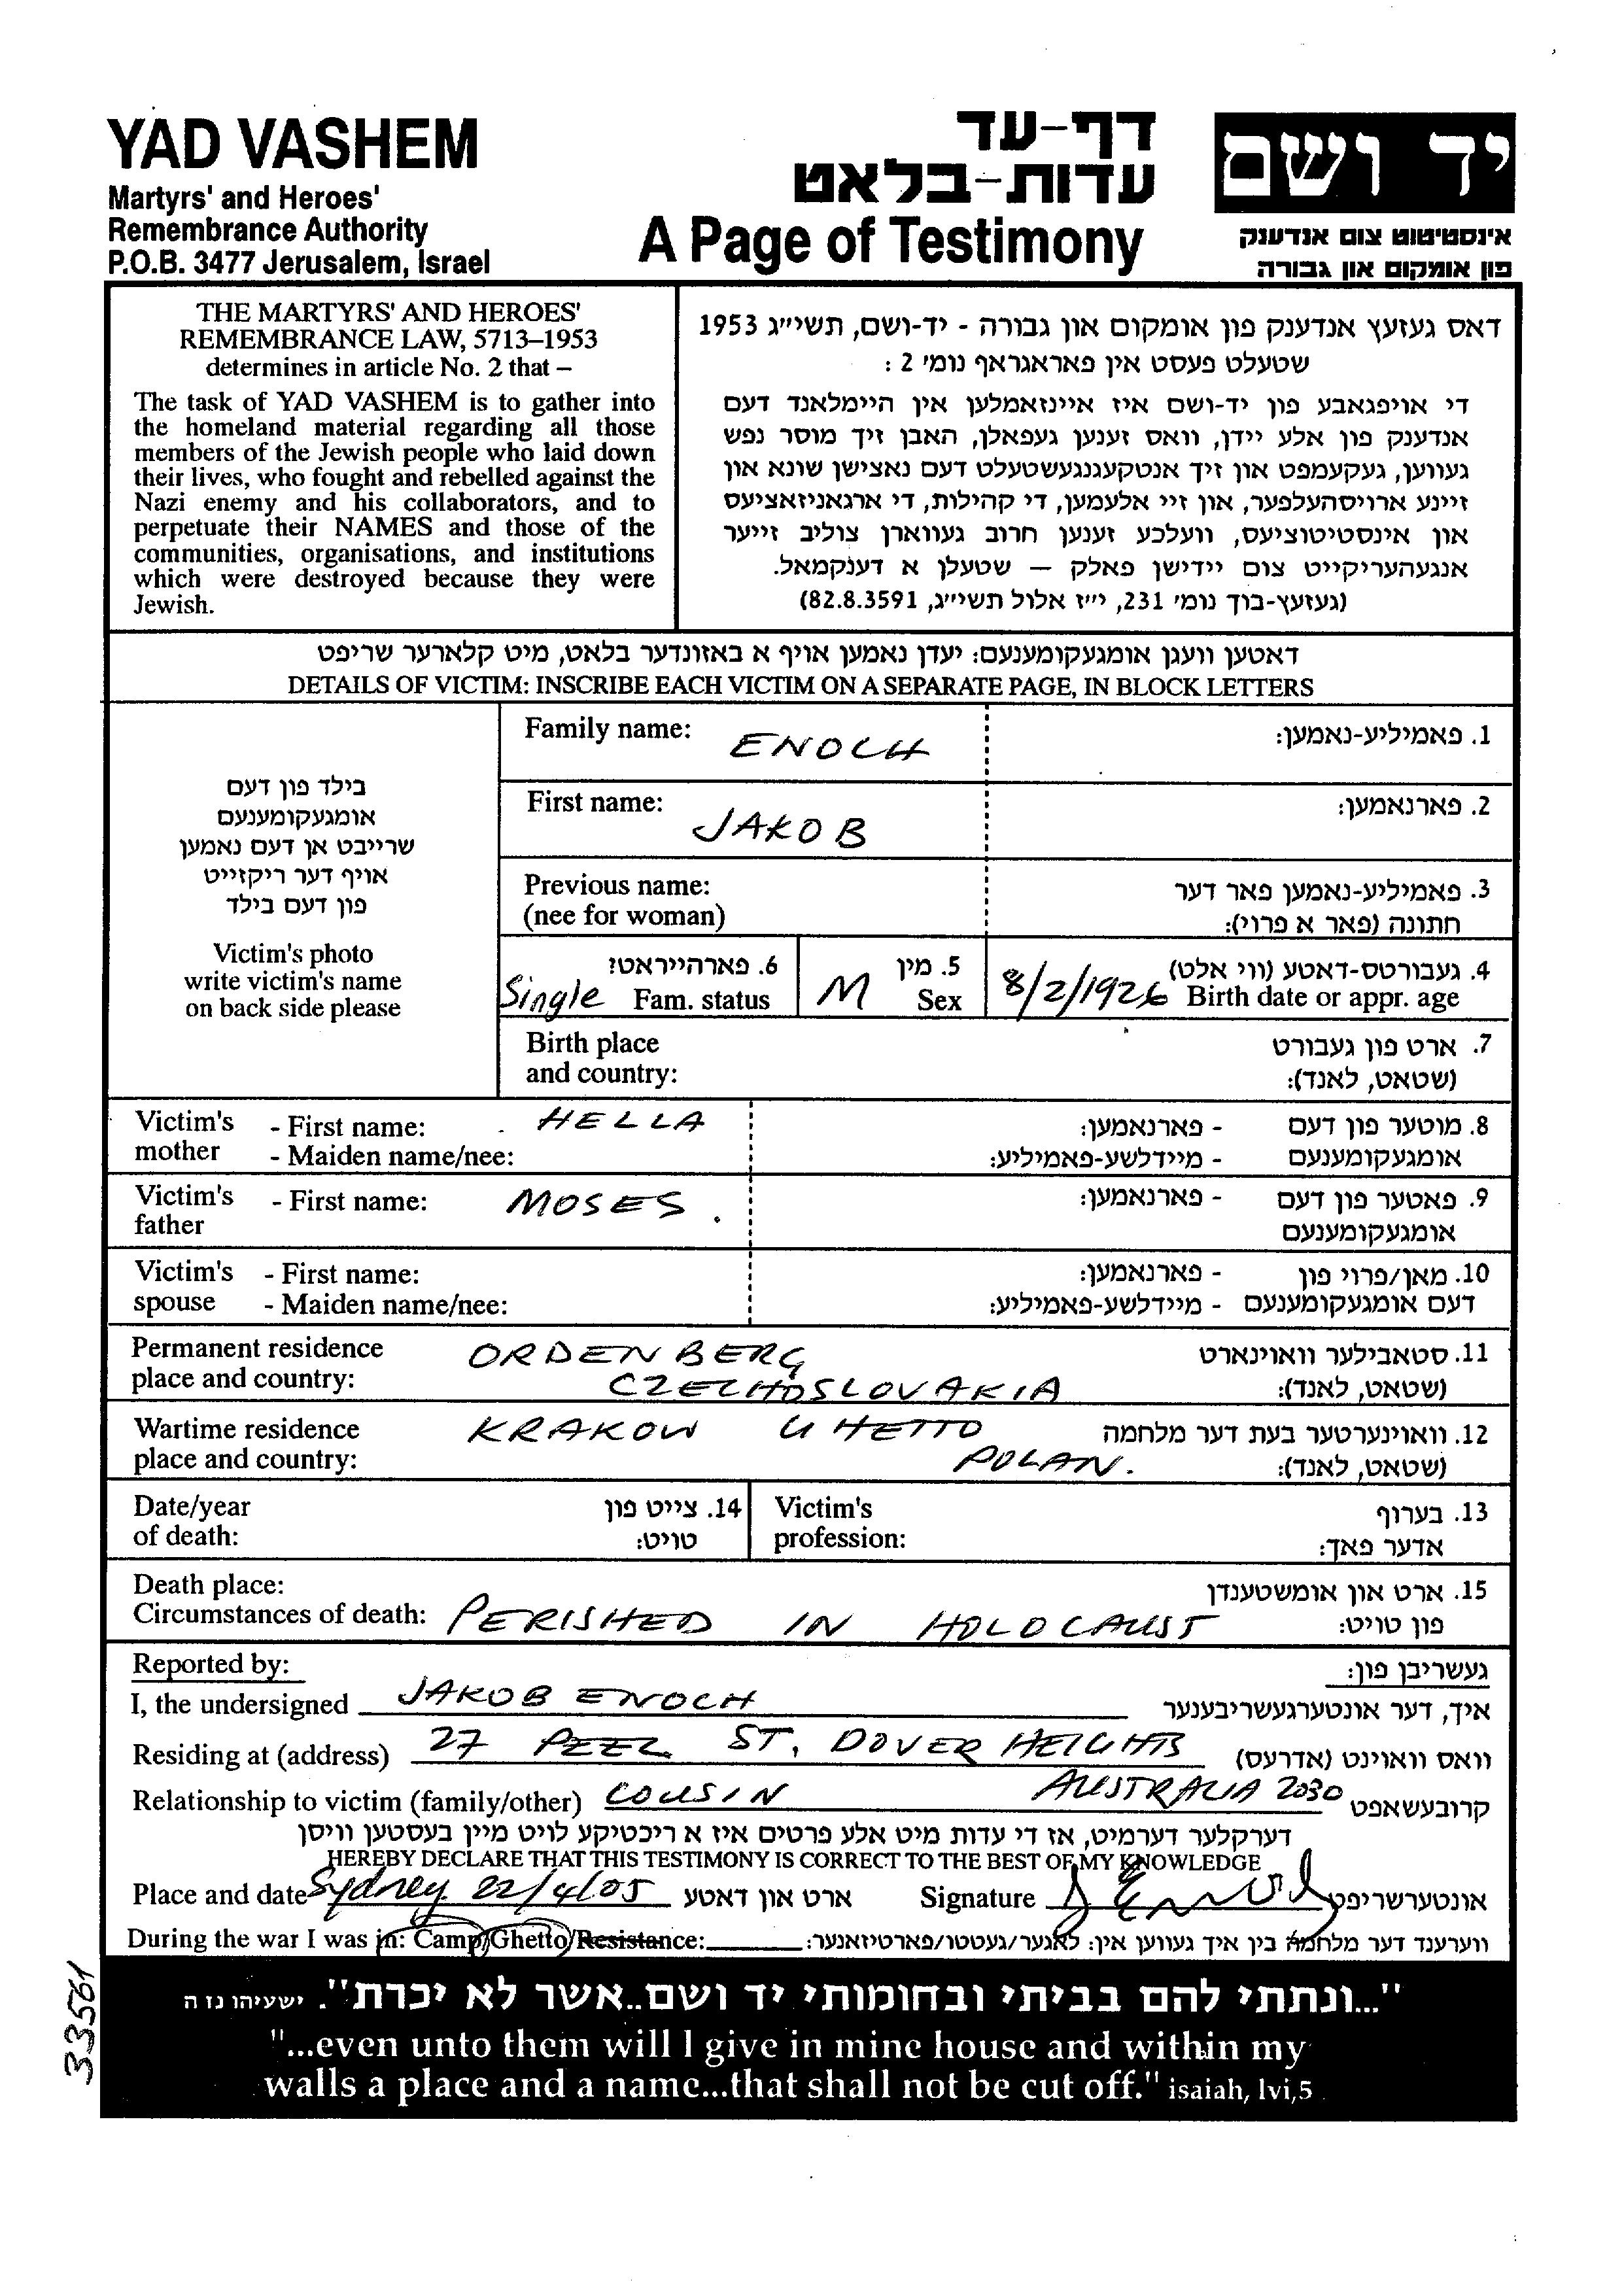 YAD VASHEM
Martyrs' and Heroes'
Remembrance Authority
P.O.B. 3477 Jerusalem, Israel
דף-עד
עדות-בלאט
A Page of Testimony
יד ושם
אינסטיטוט צום אנדענק
פון אומקום און גבורה
THE MARTYRS' AND HEROES'
REMEMBRANCE LAW, 5713–1953
determines in article No. 2 that –
The task of YAD VASHEM is to gather into
the homeland material regarding all those
members of the Jewish people who laid down
their lives, who fought and rebelled against the
Nazi enemy and his collaborators, and to
perpetuate their NAMES and those of the
communities, organisations, and institutions
which were destroyed because they were
Jewish.
דאס געזעץ אנדענק פון אומקום און גבורה - יד-ושם, תשי״ג 1953
שטעלט פעסט אין פאראגראף נומ׳ 2 :
די אויפגאבע פון יד-ושם איז איינזאמלען אין היימלאנד דעם
אנדענק פון אלע יידן, וואס זענען געפאלן, האבן זיך מוסר נפש
געווען, געקעמפט און זיך אנטקעגנגעשטעלט דעם נאצישן שונא און
זיינע ארויסהעלפער, און זיי אלעמען, די קהילות, די ארגאניזאציעס
און אינסטיטוציעס, וועלכע זענען חרוב געווארן צוליב זייער
אנגעהעריקייט צום יידישן פאלק — שטעלן א דענקמאל.
(געזעץ-בוך נומ׳ 231, י״ז אלול תשי״ג, 82.8.3591)
דאטען וועגן אומגעקומענעם: יעדן נאמען אויף א באזונדער בלאט, מיט קלארער שריפט
DETAILS OF VICTIM: INSCRIBE EACH VICTIM ON A SEPARATE PAGE, IN BLOCK LETTERS
בילד פון דעם
אומגעקומענעם
שרייבט אן דעם נאמען
אויף דער ריקזייט
פון דעם בילד
Victim's photo
write victim's name
on back side please
Family name: ENOCH 1. פאמיליע-נאמען:
First name: JAKOB 2. פארנאמען:
Previous name: 3. פאמיליע-נאמען פאר דער
(nee for woman) חתונה (פאר א פרוי):
6. פארהייראט? 5. מין 4. געבורטס-דאטע (ווי אלט)
Single Fam. status M Sex 8/2/1926 Birth date or appr. age
Birth place 7. ארט פון געבורט
and country: (שטאט, לאנד):
Victim's - First name: HELLA - פארנאמען: 8. מוטער פון דעם
mother - Maiden name/nee: - מיידלשע-פאמיליע: אומגעקומענעם
Victim's - First name: MOSES. - פארנאמען: 9. פאטער פון דעם
father אומגעקומענעם
Victim's - First name: - פארנאמען: 10. מאן/פרוי פון
spouse - Maiden name/nee: - מיידלשע-פאמיליע: דעם אומגעקומענעם
Permanent residence ORDENBERG 11. סטאבילער וואוינארט
place and country: CZECHOSLOVAKIA (שטאט, לאנד):
Wartime residence KRAKOW GHETTO 12. וואוינערטער בעת דער מלחמה
place and country: POLAN. (שטאט, לאנד):
Date/year 14. צייט פון Victim's 13. בערוף
of death: טויט: profession: אדער פאך:
Death place: 15. ארט און אומשטענדן
Circumstances of death: PERISHED IN HOLOCAUST פון טויט:
Reported by: געשריבן פון:
I, the undersigned JAKOB ENOCH איך, דער אונטערגעשריבענער
Residing at (address) 27 PEEL ST, DOVER HEIGHTS וואס וואוינט (אדרעס)
Relationship to victim (family/other) COUSIN AUSTRALIA 2030 קרובעשאפט
דערקלער דערמיט, אז די עדות מיט אלע פרטים איז א ריכטיקע לויט מיין בעסטען וויסן
HEREBY DECLARE THAT THIS TESTIMONY IS CORRECT TO THE BEST OF MY KNOWLEDGE
Place and date Sydney 22/4/05 ארט און דאטע Signature J Enoch אונטערשריפט
During the war I was in: Camp/Ghetto/Resistance: ווערענד דער מלחמה בין איך געווען אין: לאגער/געטטו/פארטיזאנער:
"...ונתתי להם בביתי ובחומותי יד ושם..אשר לא יכרת". ישעיהו נז ה
"...even unto them will I give in mine house and within my
walls a place and a name...that shall not be cut off." isaiah, lvi,5
33561